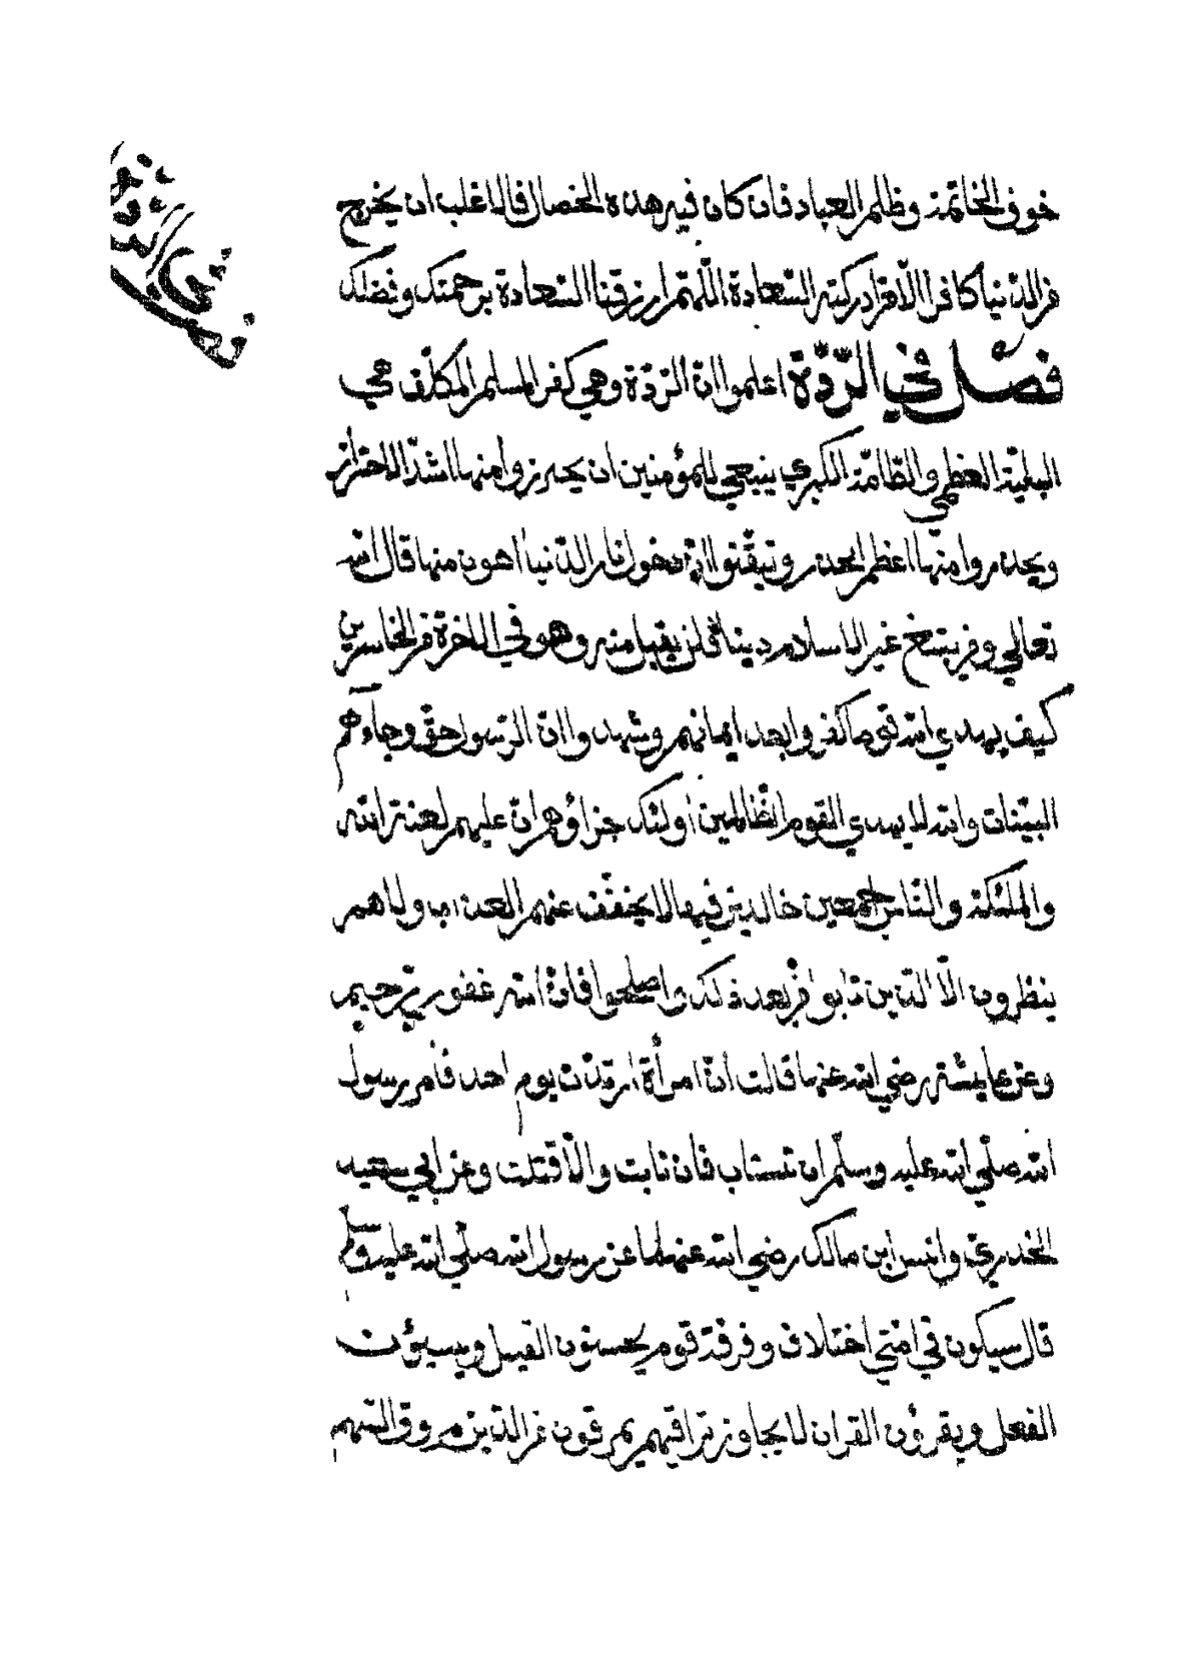 خوف الخاتمة وظلم العباد فان كان فيه هذه الخصال فالاغلب ان يخرج
من الدّنيا كافرا الّا من ادركته السّعادة اللّهمّ ارزقنا السّعادة برحمتك وفضلك
فصل في الرّدّة اعلموا انّ الرّدّة وهي كفر المسلم المكلّف هي
البليّة العظمى والطّامّة الكبرى ينبغي للمؤمنين ان يحترزوا منها اشدّ الاحتراز
ويحذروا منها اعظم الحذر وتيقّنوا انّ دخول نار الدّنيا اهون منها قال الله
تعالى ومن يبتغ غير الاسلام دينا فلن يقبل منه وهو في الاخرة من الخاسرين
كيف يهدي الله قوما كفروا بعد ايمانهم وشهدوا انّ الرّسول حقّ وجاءهم
البيّنات والله لا يهدي القوم الظّالمين اولئك جزاؤهم انّ عليهم لعنة الله
والملئكة والنّاس اجمعين خالدين فيها لا يخفّف عنهم العذاب ولا هم
ينظرون الّا الّذين تابوا من بعد ذلك واصلحوا فانّ الله غفور رّحيم
وعن عايشة رضي الله عنها قالت انّ امرأة ارتدّت يوم احد فأمر رسول
الله صلّى الله عليه وسلّم ان تستتاب فان تابت والّا قتلت وعن ابي سعيد
الخدريّ وانس ابن مالك رضي الله عنهما عن رسول الله صلّى الله عليه وسلّم
قال سيكون في امّتي اختلاف وفرقة قوم يحسنون القيل ويسيؤن
الفعل ويقرؤن القران لا يجاوز تراقيهم يمرقون من الدّين مروق السّهم